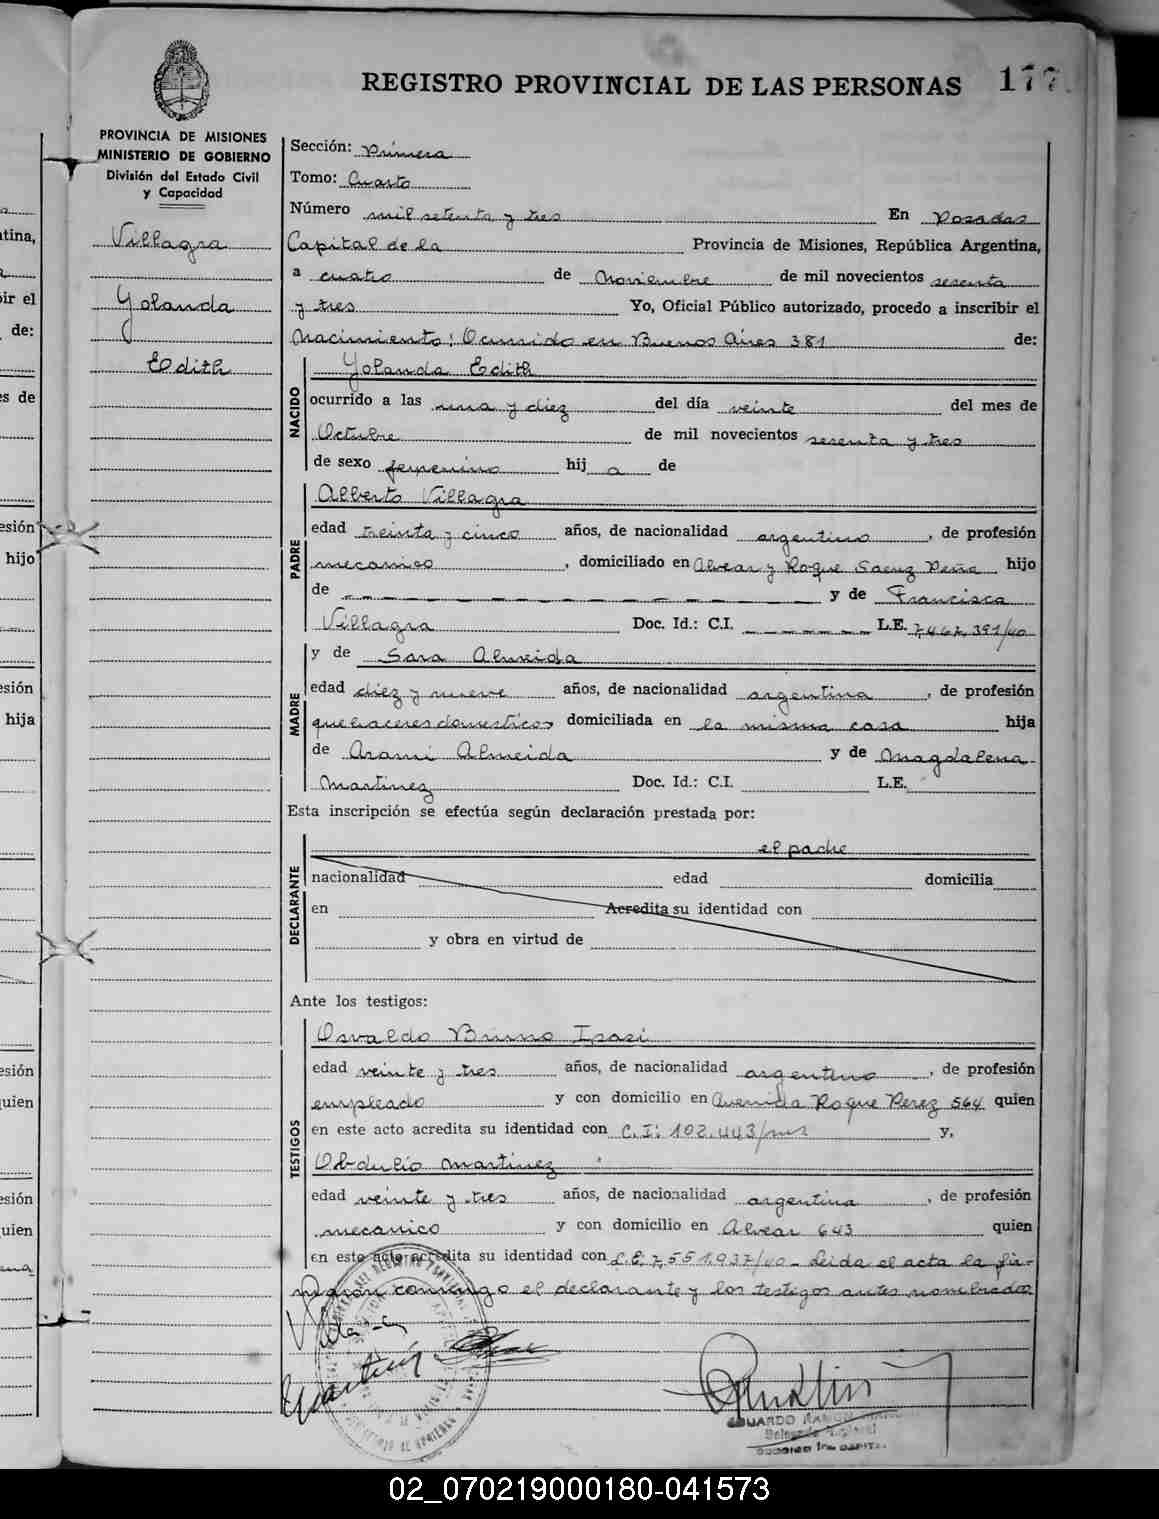 REGISTRO PROVINCIAL DE LAS PERSONAS 177
PROVINCIA DE MISIONES
MINISTERIO DE GOBIERNO
División del Estado Civil
y Capacidad
Villagra
Yolanda
Edith
Sección: Primera
Tomo: Cuarto
Número mil setenta y tres En Posadas
Capital de la Provincia de Misiones, República Argentina,
a cuatro de Noviembre de mil novecientos sesenta
y tres Yo, Oficial Público autorizado, procedo a inscribir el
Nacimiento: Ocurrido en Buenos Aires 381 de:
NACIDO
Yolanda Edith
ocurrido a las una y diez del día veinte del mes de
Octubre de mil novecientos sesenta y tres
de sexo femenino hij a de
PADRE
Alberto Villagra
edad treinta y cinco años, de nacionalidad argentino, de profesión
mecanico, domiciliado en Alvear y Roque Saenz Peña hijo
de y de Francisca
Villagra Doc. Id.: C.I. L.E. 7,467,391/40
y de Sara Almeida
MADRE
edad diez y nueve años, de nacionalidad argentina, de profesión
quehaceres domesticos domiciliada en la misma casa hija
de Arami Almeida y de Magdalena
Martinez Doc. Id.: C.I. L.E.
Esta inscripción se efectúa según declaración prestada por:
el padre
DECLARANTE
nacionalidad edad domicilia
en Acredita su identidad con
y obra en virtud de
Ante los testigos:
TESTIGOS
Osvaldo Bruno
edad veinte y tres años, de nacionalidad argentino, de profesión
empleado y con domicilio en Avenida Roque Perez 564 quien
en este acto acredita su identidad con C.I: 102.443/mns y,
Obdulio Martinez
edad veinte y tres años, de nacionalidad argentina, de profesión
mecanico y con domicilio en Alvear 643 quien
en este acto acredita su identidad con L.E. 7,551,937/40 - Leida el acta la fir-
maron conmigo el declarante y los testigos antes nombrados
EDUARDO RAMON
02_070219000180-041573